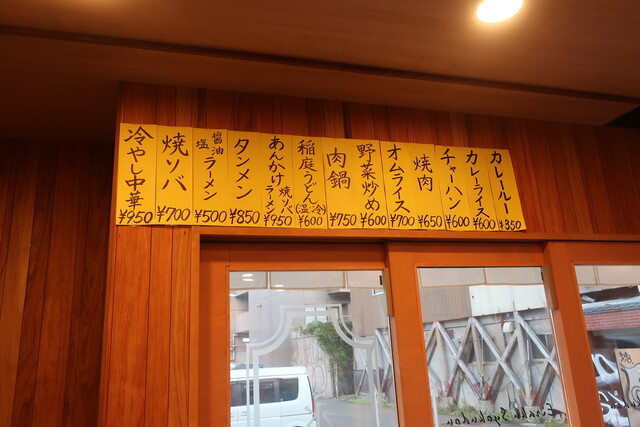 カレールー
¥350
カレーライス
¥600
チャーハン
¥600
焼肉
¥650
オムライス
¥700
野菜炒め
¥600
肉鍋
¥750
稲庭うどん(温・冷)
¥600
あんかけ 焼ソバ ラーメン
¥950
タンメン
¥850
醤油 塩 ラーメン
¥500
焼ソバ
¥700
冷やし中華
¥950
Eisakk Syokudou